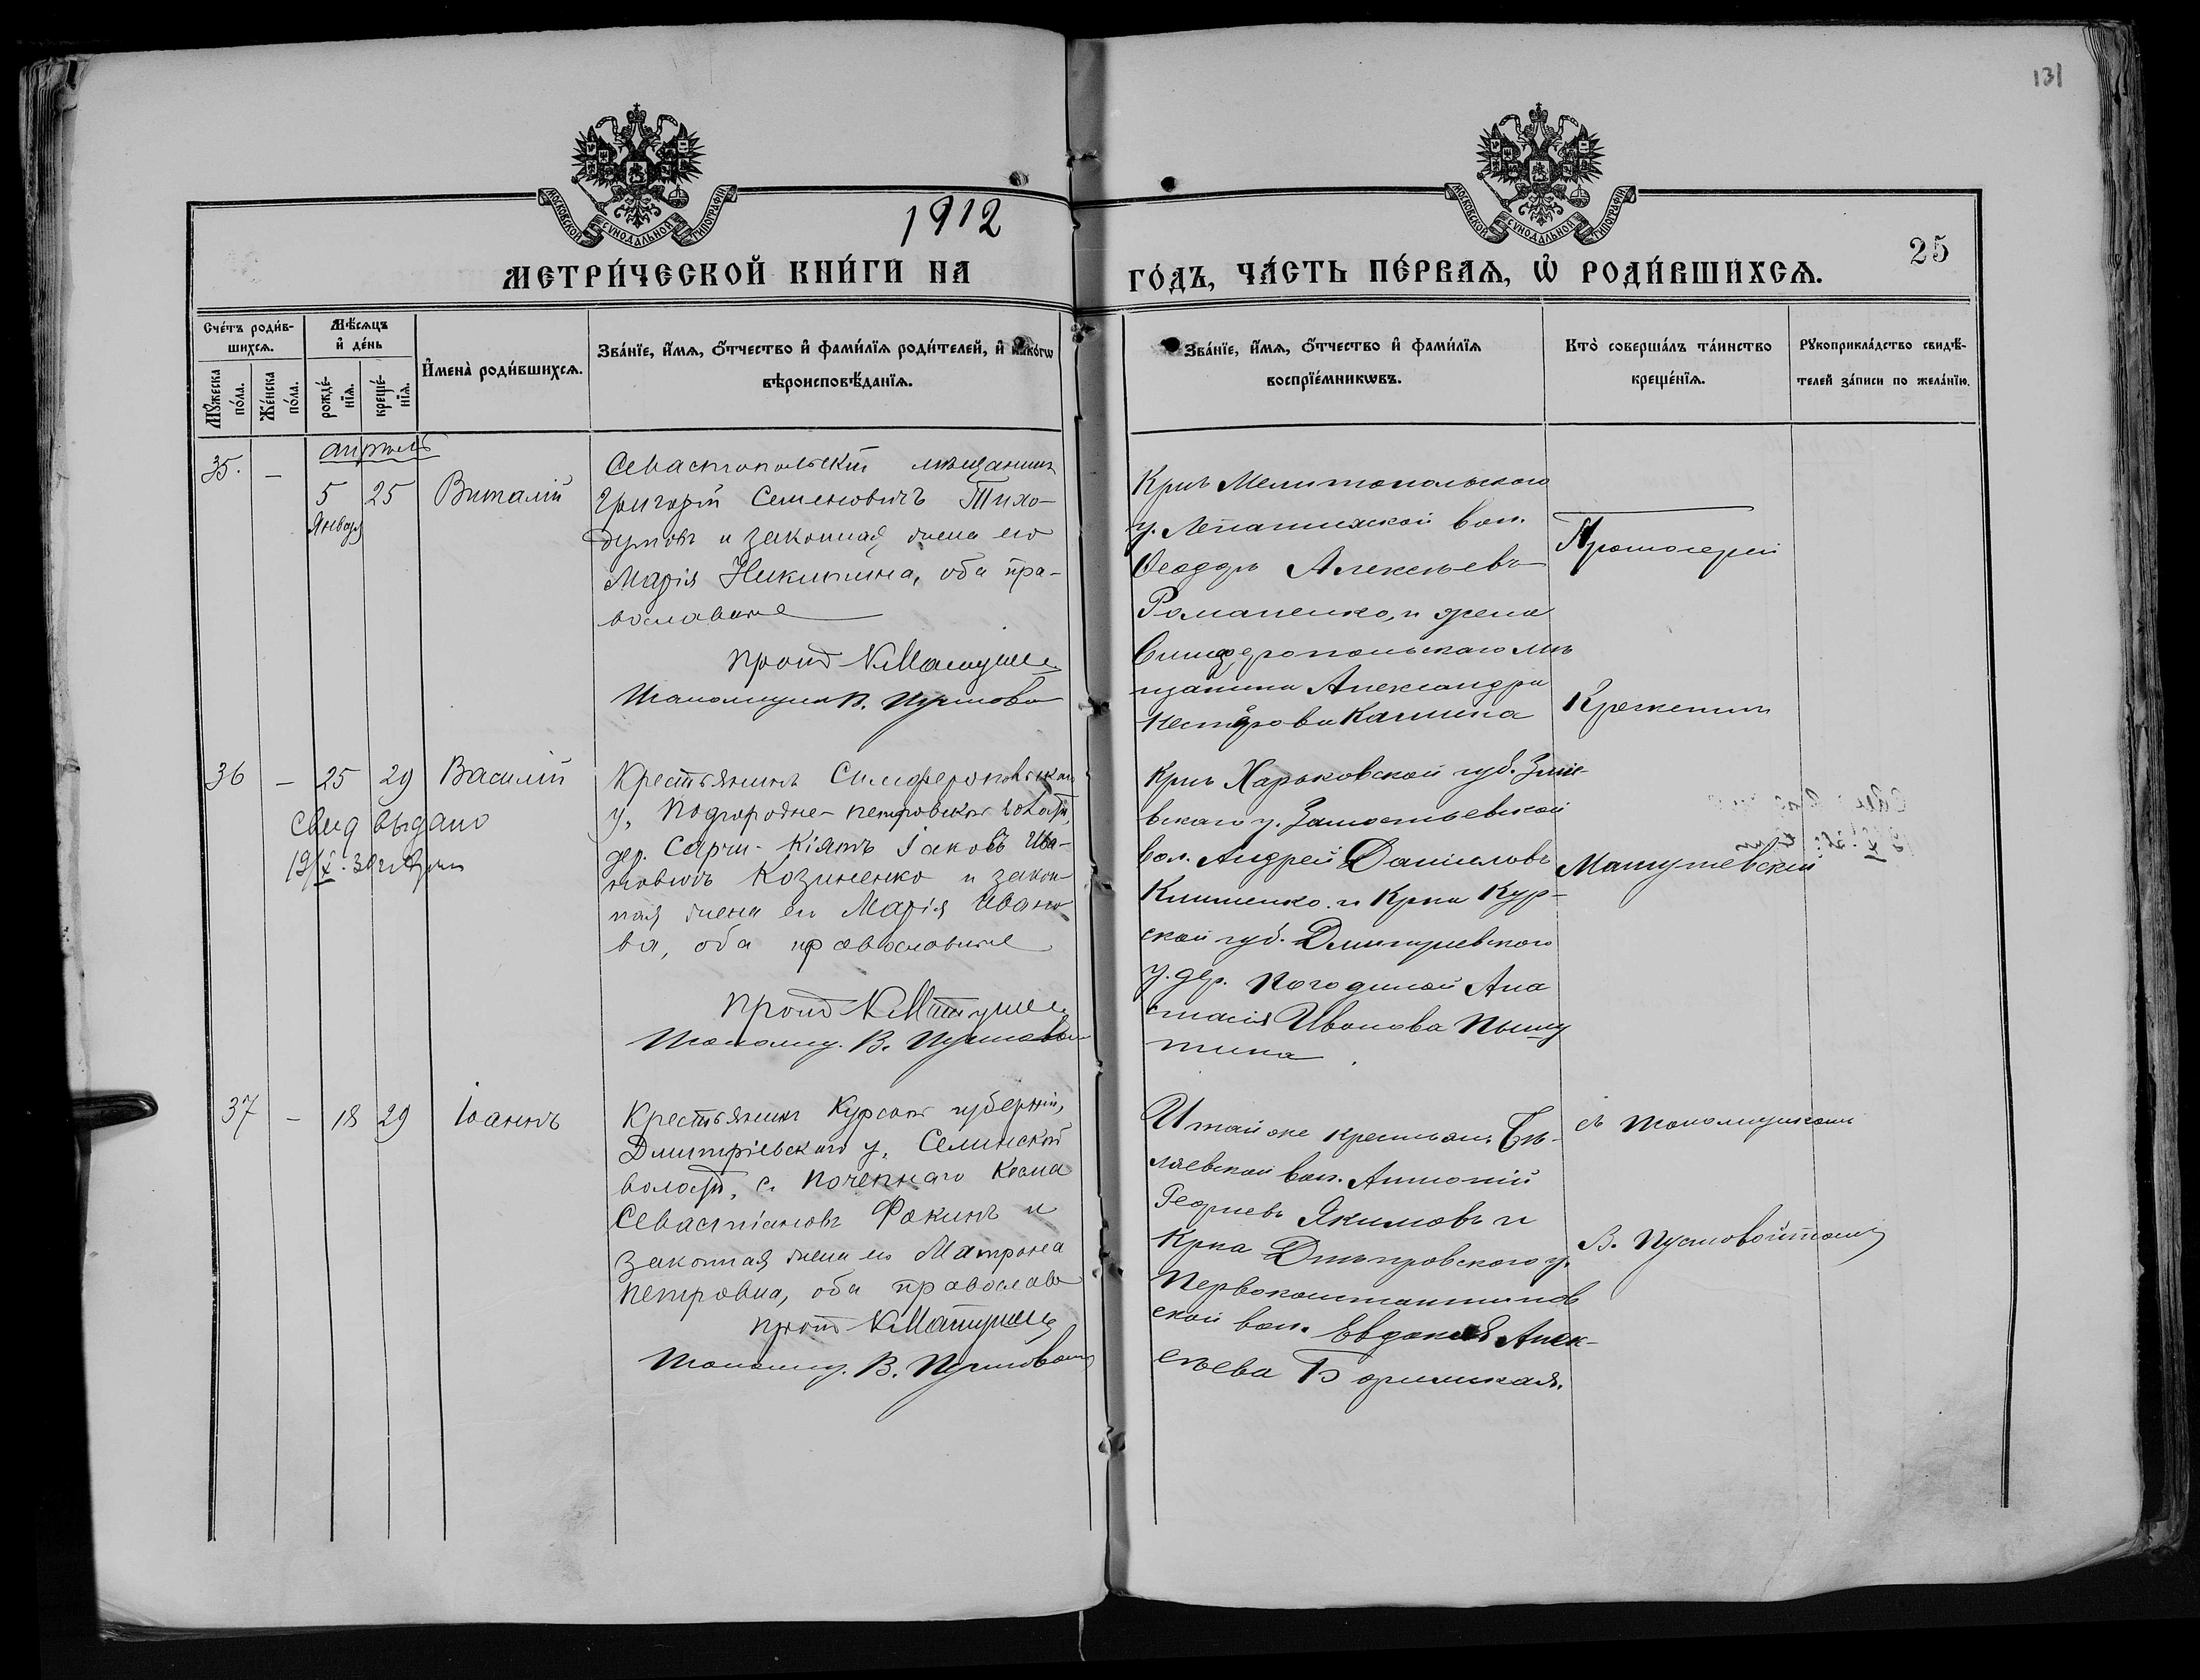 131
МОСКОВСКОЙ СУНОДАЛЬНОЙ ТИПОГРАФІИ
МОСКОВСКОЙ СУНОДАЛЬНОЙ ТИПОГРАФІИ
1912
25
МЕТРИ́ЧЕСКОЙ КНИ́ГИ НА
ГО́ДЪ, ЧА́СТЬ ПЕ́РВАѦ, Ѡ҆ РОДИ́ВШИХСѦ.
Сче́тъ роди́в-
шихсѧ.
Мꙋ́жеска по́ла.
Же́нска по́ла.
Мѣ́сѧцъ
и҆ де́нь
рожде́-нїѧ.
креще́-нїѧ.
И҆мена̀ роди́вшихсѧ.
Зва́нїе, и҆́мѧ, ѻ҆́тчество и҆ фами́лїѧ роди́телей, и҆ како́гѡ
вѣроисповѣ́данїѧ.
Зва́нїе, и҆́мѧ, ѻ҆́тчество и҆ фами́лїѧ
воспрїе́мникѡвъ.
Кто̀ соверша́лъ та́инство
креще́нїѧ.
Рꙋкоприкла́дство свидѣ́-
телей за́писи по жела́нїю.
апрѣль
35. – 5 25 Виталій
Января
Севастопольскій мѣщанинъ
Григорій Семеновичъ Тихо-
и законная жена его
Марія Никитина, оба пра-
вославные
прот N Матуше
Псаломщик В. Пустово
Крнъ Мелитопольскаго
у. вол.
Ѳеодоръ Алексѣевъ
Романенко, и жена
Симферопольскаго мѣ
щанина Александра
Нестерова Калинина
Протоіерей
Крежетинъ
36 – 25 29 Василій
свид выдано
Крестьянинъ Симферопольскаго
у. Подгородне-петровской волости,
дер. Сарчи-Кіятъ Іаковъ Ива-
новичъ Козиненко и закон-
ная жена его Марія Ивано-
ва, оба православные
прот N Матуше
Псаломщ. В. Пустовой
Крнъ Харьковской губ. Зміе-
вскаго у. Замостьевской
вол. Андрей Даніиловъ
Клименко и Крка Кур-
ской губ. Дмитріевскаго
у. дер. Погодиной Ана
стасія Ивонова
Матушевскій
37 – 18 29 Іоаннъ
Крестьянинъ Курской губерніи,
Дмитріевскаго у. Селинской
волости, с. Почепнаго Косма
Севастіановъ Фокинъ и
законная жена его Матрона
Петровна, оба православ
прот N Матушев
Псаломщ. В. Пустовой
крестьян. Бѣ-
ляевской вол. Антоній
Георгіевъ Якимовъ и
Крка Днѣпровскаго у.
Первоконстантинов
ской вол. Евдокія Алек-
сѣева
съ псаломщикомъ
В. Пустовойтомъ